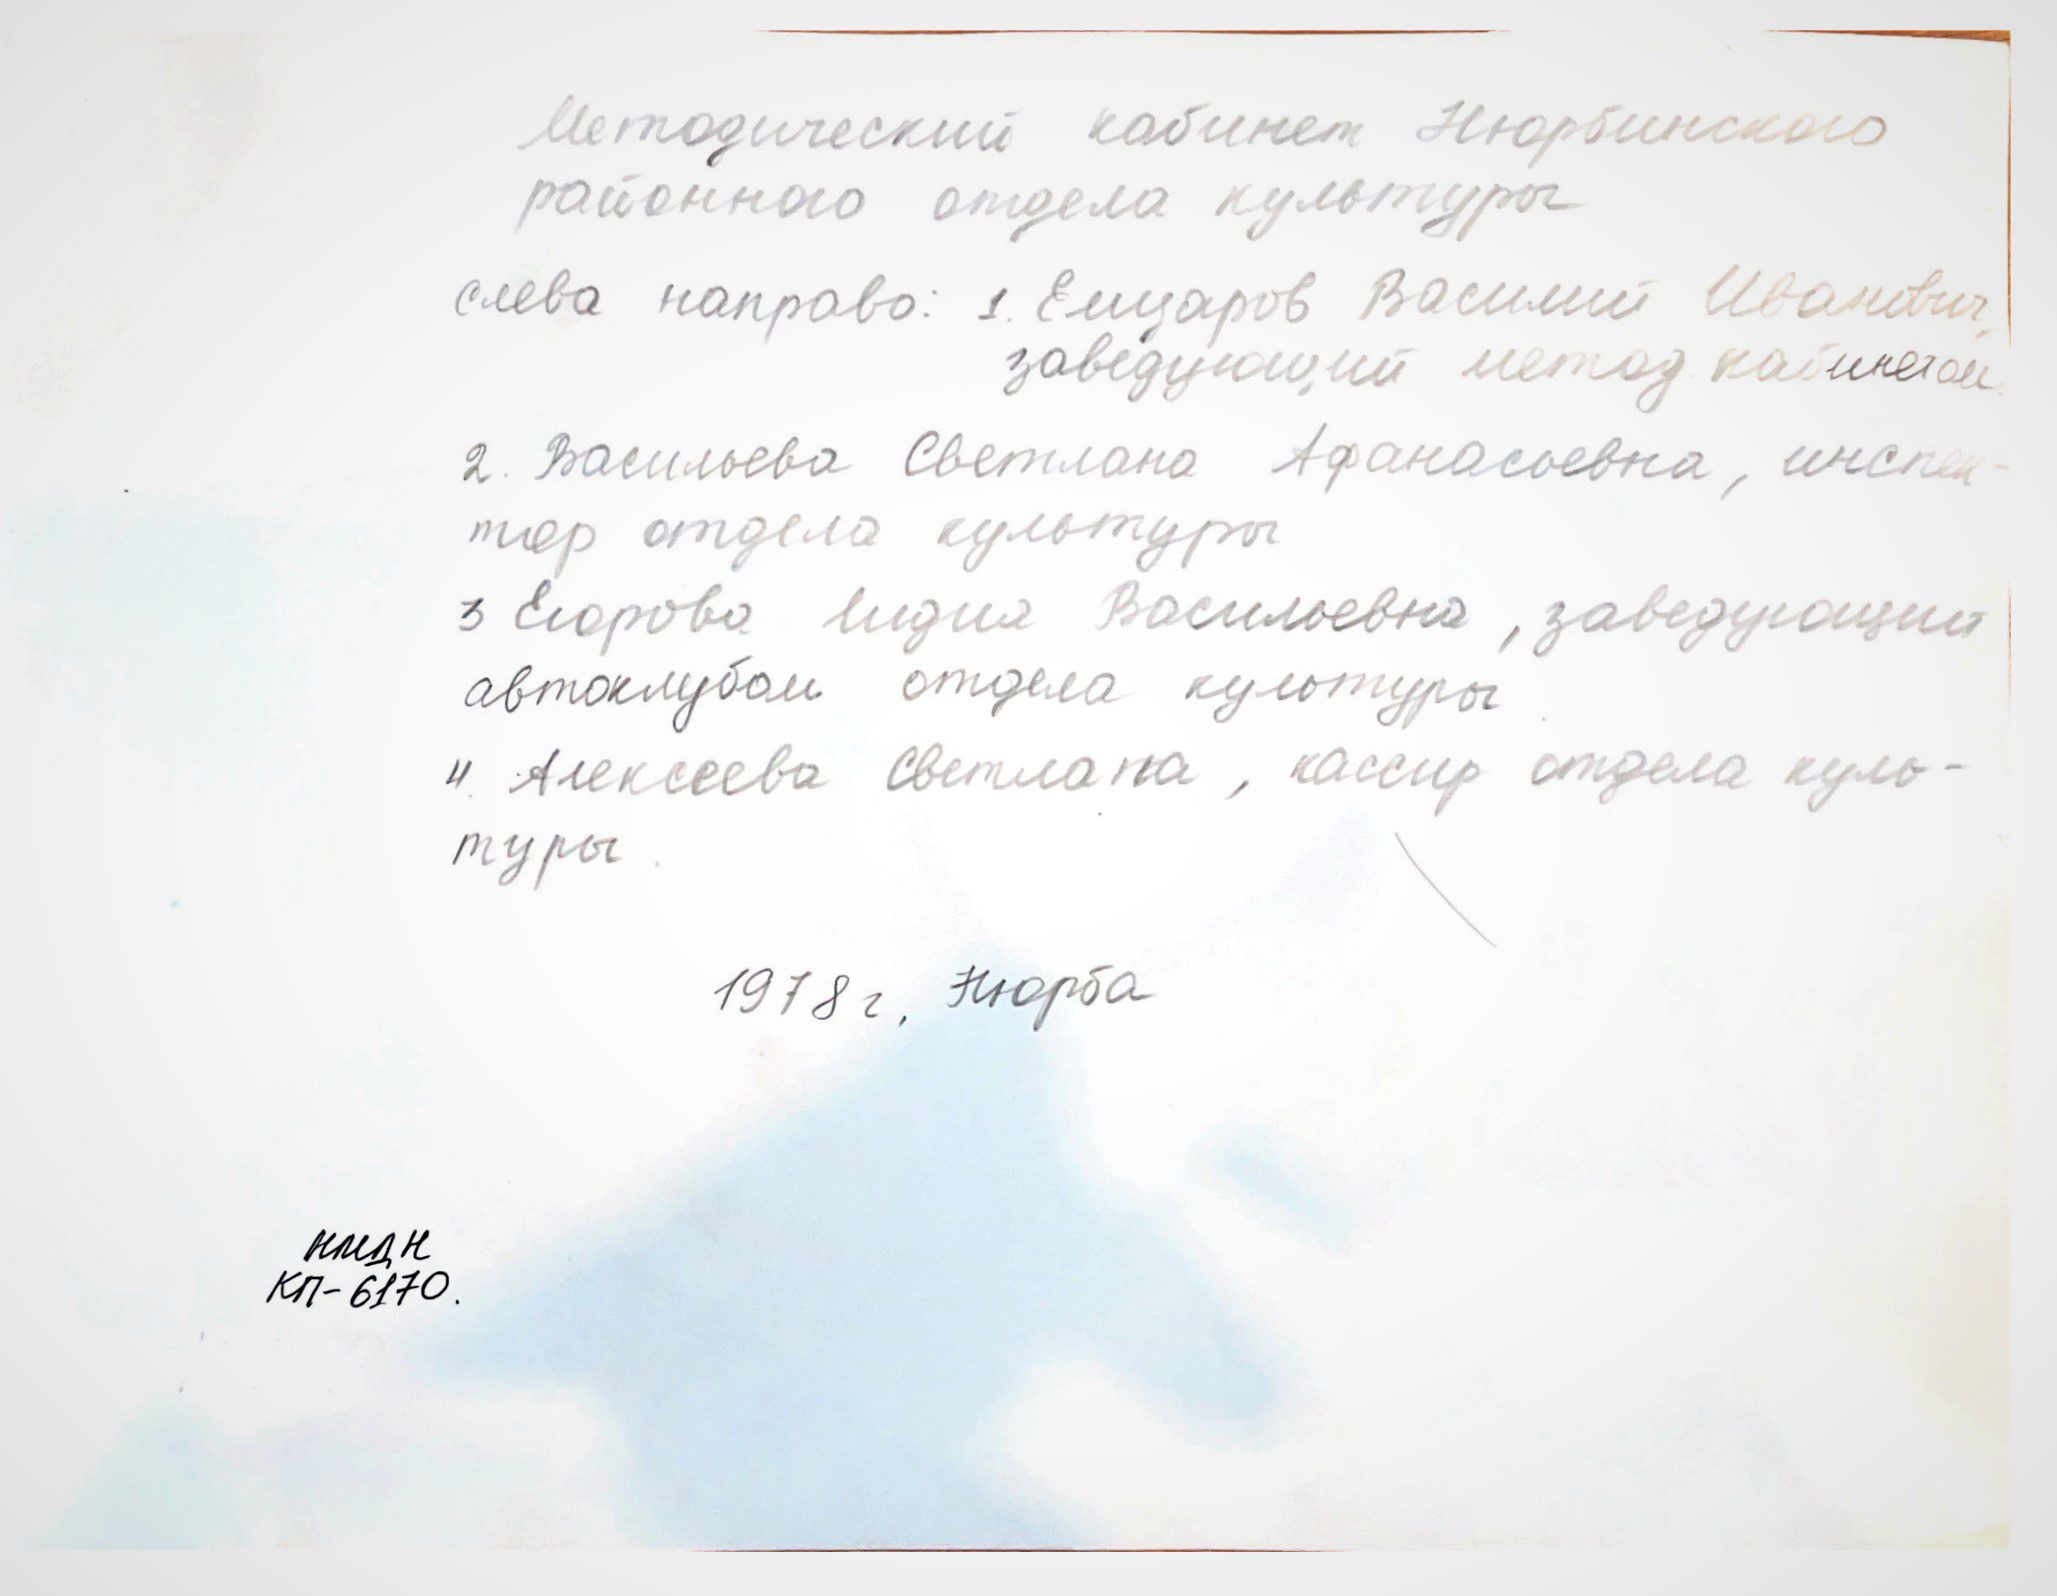 Методический кабинет Нюрбинского
районного отдела культуры
слева направо: 1. Емцаров Василий Иванович,
заведующий метод. кабинетом.
2. Васильева Светлана Афанасьевна, инспек-
тор отдела культуры
3 Егорова Лидия Васильевна, заведующий
автоклубом отдела культуры
4. Алексеева Светлана, кассир отдела куль-
туры.
1978 г. Нюрба
НМДН
КП-6170.